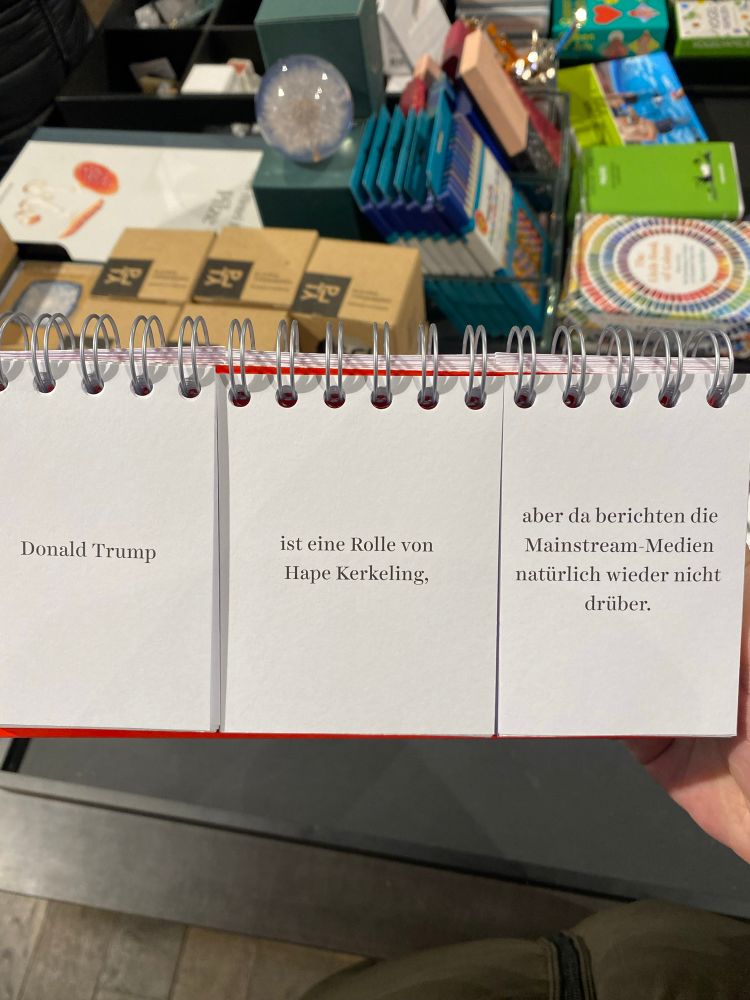 PUTA
PUTA
PUTA
Donald Trump
ist eine Rolle von
Hape Kerkeling,
aber da berichten die
Mainstream-Medien
natürlich wieder nicht
drüber.